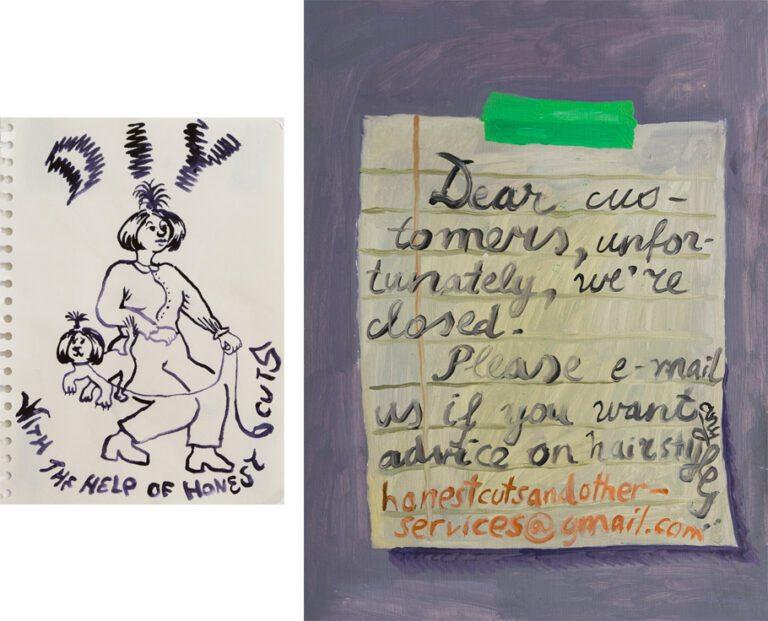 DIY
WITH THE HELP OF HONEST CUTS
Dear cus-
tomers, unfor-
tunately, we're
closed.
Please e-mail
us if you want
advice on
honestcutsandother-
services@gmail.com